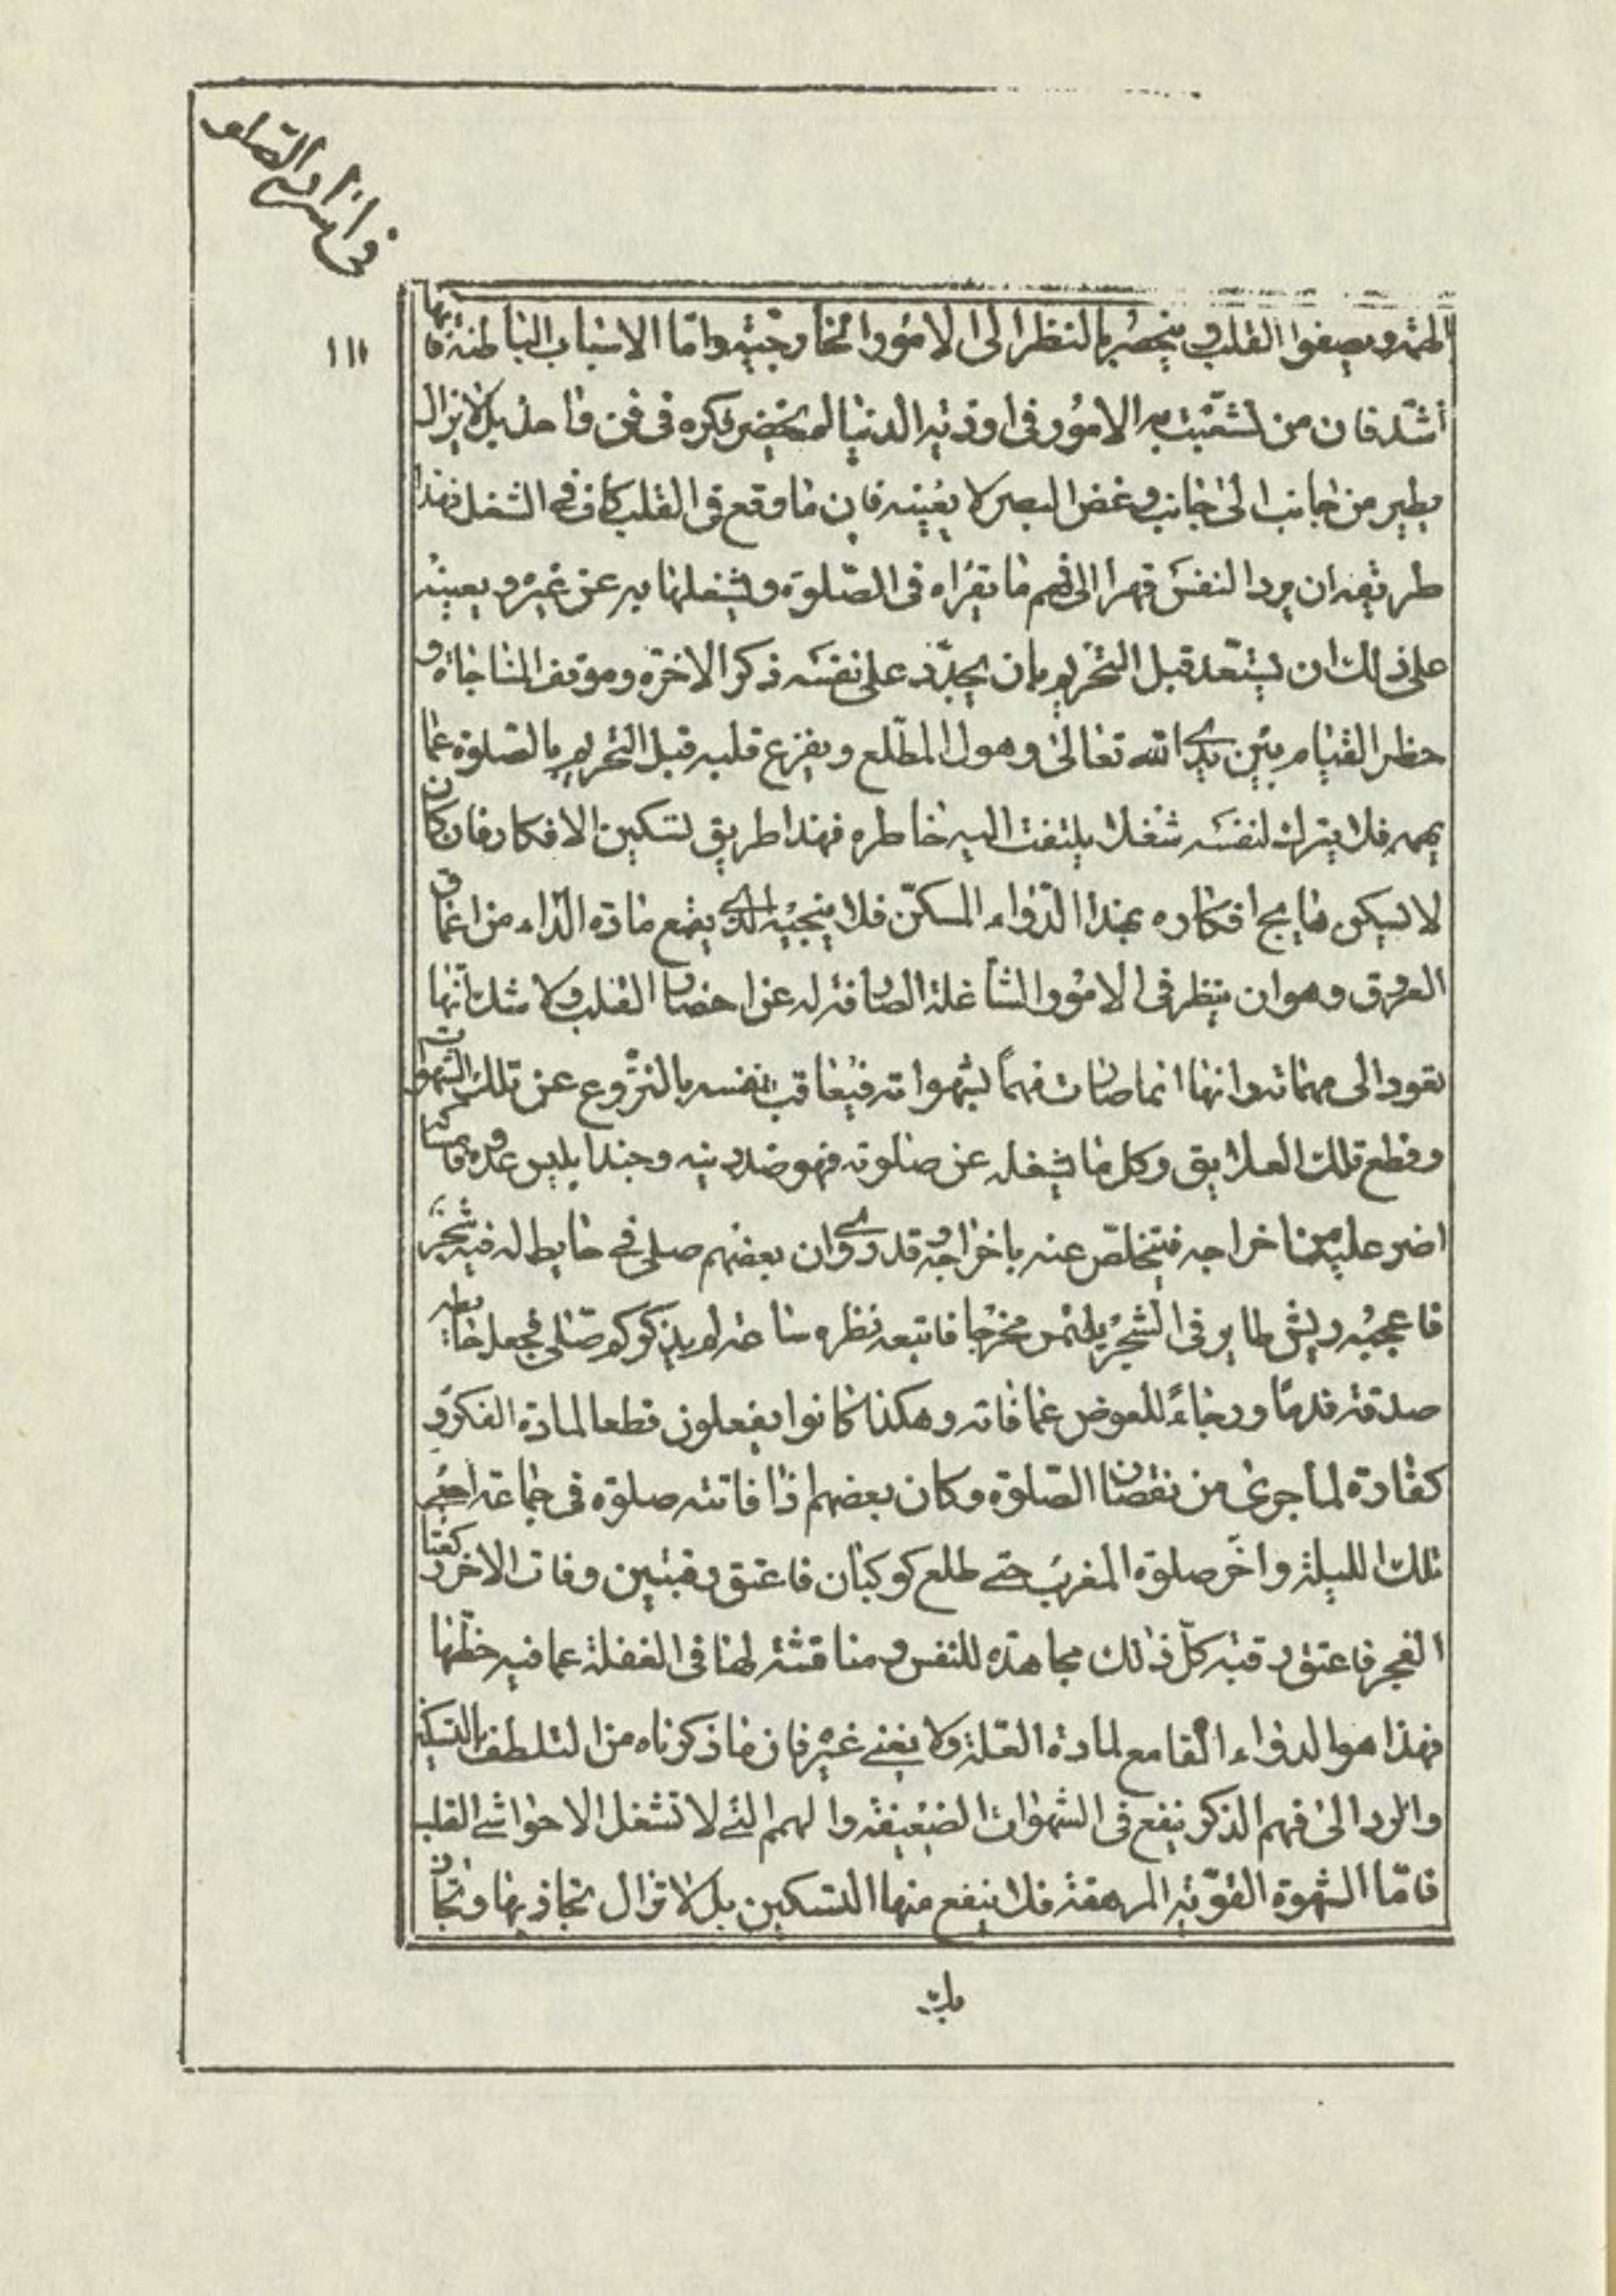 في اسرار الصلوة
١١١
الهمة ويصفوا القلب وينحصر بالنظر الى الامور الخارجية واما الاسباب الباطنة فانها
اشد فان من تشعبت به الامور في اودية الدنيا لم ينحصر فكره في فن واحد بل لا يزال
يطير من جانب الى جانب وغض البصر لا يغنيه فان ما وقع في القلب كاف في الشغل فهذا
طريقه ان يرد النفس قهرا الى فهم ما يقراه في الصلوة ويشغلها به عن غيره ويعينه
على ذلك ان يستعد قبل التحريم بان يجدد على نفسه ذكر الاخرة وموقف المناجاة و
خطر القيام بين يدي الله تعالى وهول المطلع ويفرغ قلبه قبل التحريم بالصلوة عما
يهمه فلا يترك لنفسه شغلا يلتفت اليه خاطره فهذا طريق تسكين الافكار فان كان
لا يسكن هايج افكاره بهذا الدواء المسكن فلا ينجيه الا الذي يقمع مادة الداء من اعماق
العروق وهو ان ينظر في الامور الشاغلة الصارفة له عن احضار القلب ولا شك انها
تعود الى مهماته وانها انما صارت مهما لشهواته فيعاقب نفسه بالنزوع عن تلك الشهوات
وقطع تلك العلايق وكل ما يشغله عن صلوته فهو ضد دينه وجند ابليس عدوه فامساكه
اضر عليه من اخراجه فيتخلص عنه باخراجه وقد روي ان بعضهم صلى في حايط له فيه شجر
فاعجبه ريش طاير في الشجر يلتمس مخرجا فاتبعه نظره ساعة لم يذكر كم صلى فجعل حايطه
صدقة ندما ورجاء للعوض عما فاته وهكذا كانوا يفعلون قطعا لمادة الفكر و
كفارة لما جرى من نقصان الصلوة وكان بعضهم اذا فاتته صلوة في جماعة احيى
تلك الليلة واخر صلوة المغرب حتى طلع كوكبان فاعتق رقبتين وفات الاخر ركعتا
الفجر فاعتق رقبة كل ذلك مجاهدة للنفس ومناقشة لها في الغفلة عما فيه حظها
فهذا هو الدواء القامع لمادة العلة ولا يغني غيره فان ما ذكرناه من التلطف بالتسكين
والرد الى فهم الذكر ينفع في الشهوات الضعيفة والهمم التي لا تشغل الا حواشي القلب
فاما الشهوة القوية المرهقة فلا ينفع منها التسكين بل لا تزال تجاذبها وتجاذ
بك